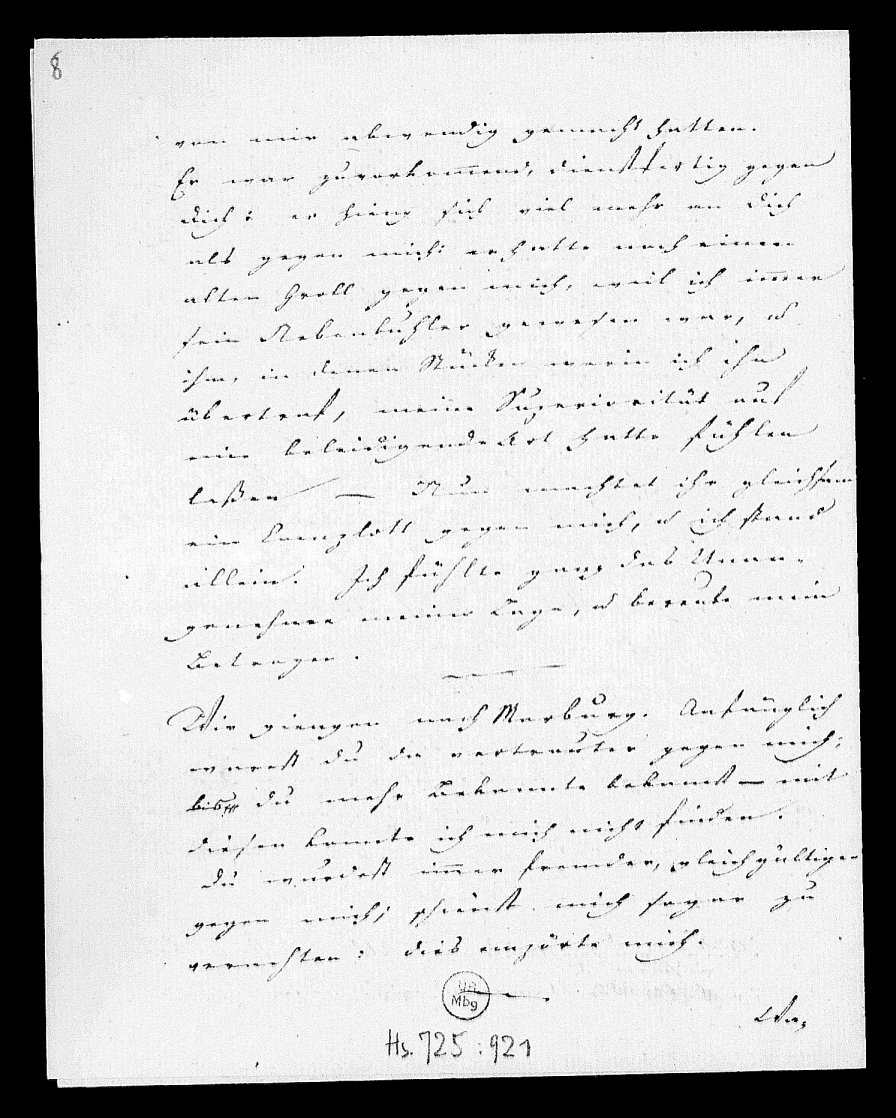 8
von mir abwendig gemacht hatten.
Er war zuvorkom̅end, dienstfertig gegen
dich: er hieng sich viel mehr an dich
als gegen mich: er hatte noch einen
alten Groll gegen mich, weil ich im̅er
sein Nebenbuhler gewesen war, u
ihm, in denen Stücken worin ich ihn
übertraf, meine Superiorität auf
eine beleidigende Art hatte fühlen
laßen — Nun machtet ihr gleichsam
ein Complott gegen mich, u ich stand
allein. Ich fühlte ganz das Unan-
genehme meiner Lage, u bereute mein
Betragen.
Wir giengen nach Marburg. Anfänglich
warst du da vertrauter gegen mich,
bis du mehr Bekannte bekamst — mit
diesen konnte ich mich nicht finden.
Du wurdest im̅er fremder, gleichgültiger
gegen mich; schienst mich sogar zu
verachten: dies empörte mich.
UB
Mbg
Hs. 725:921